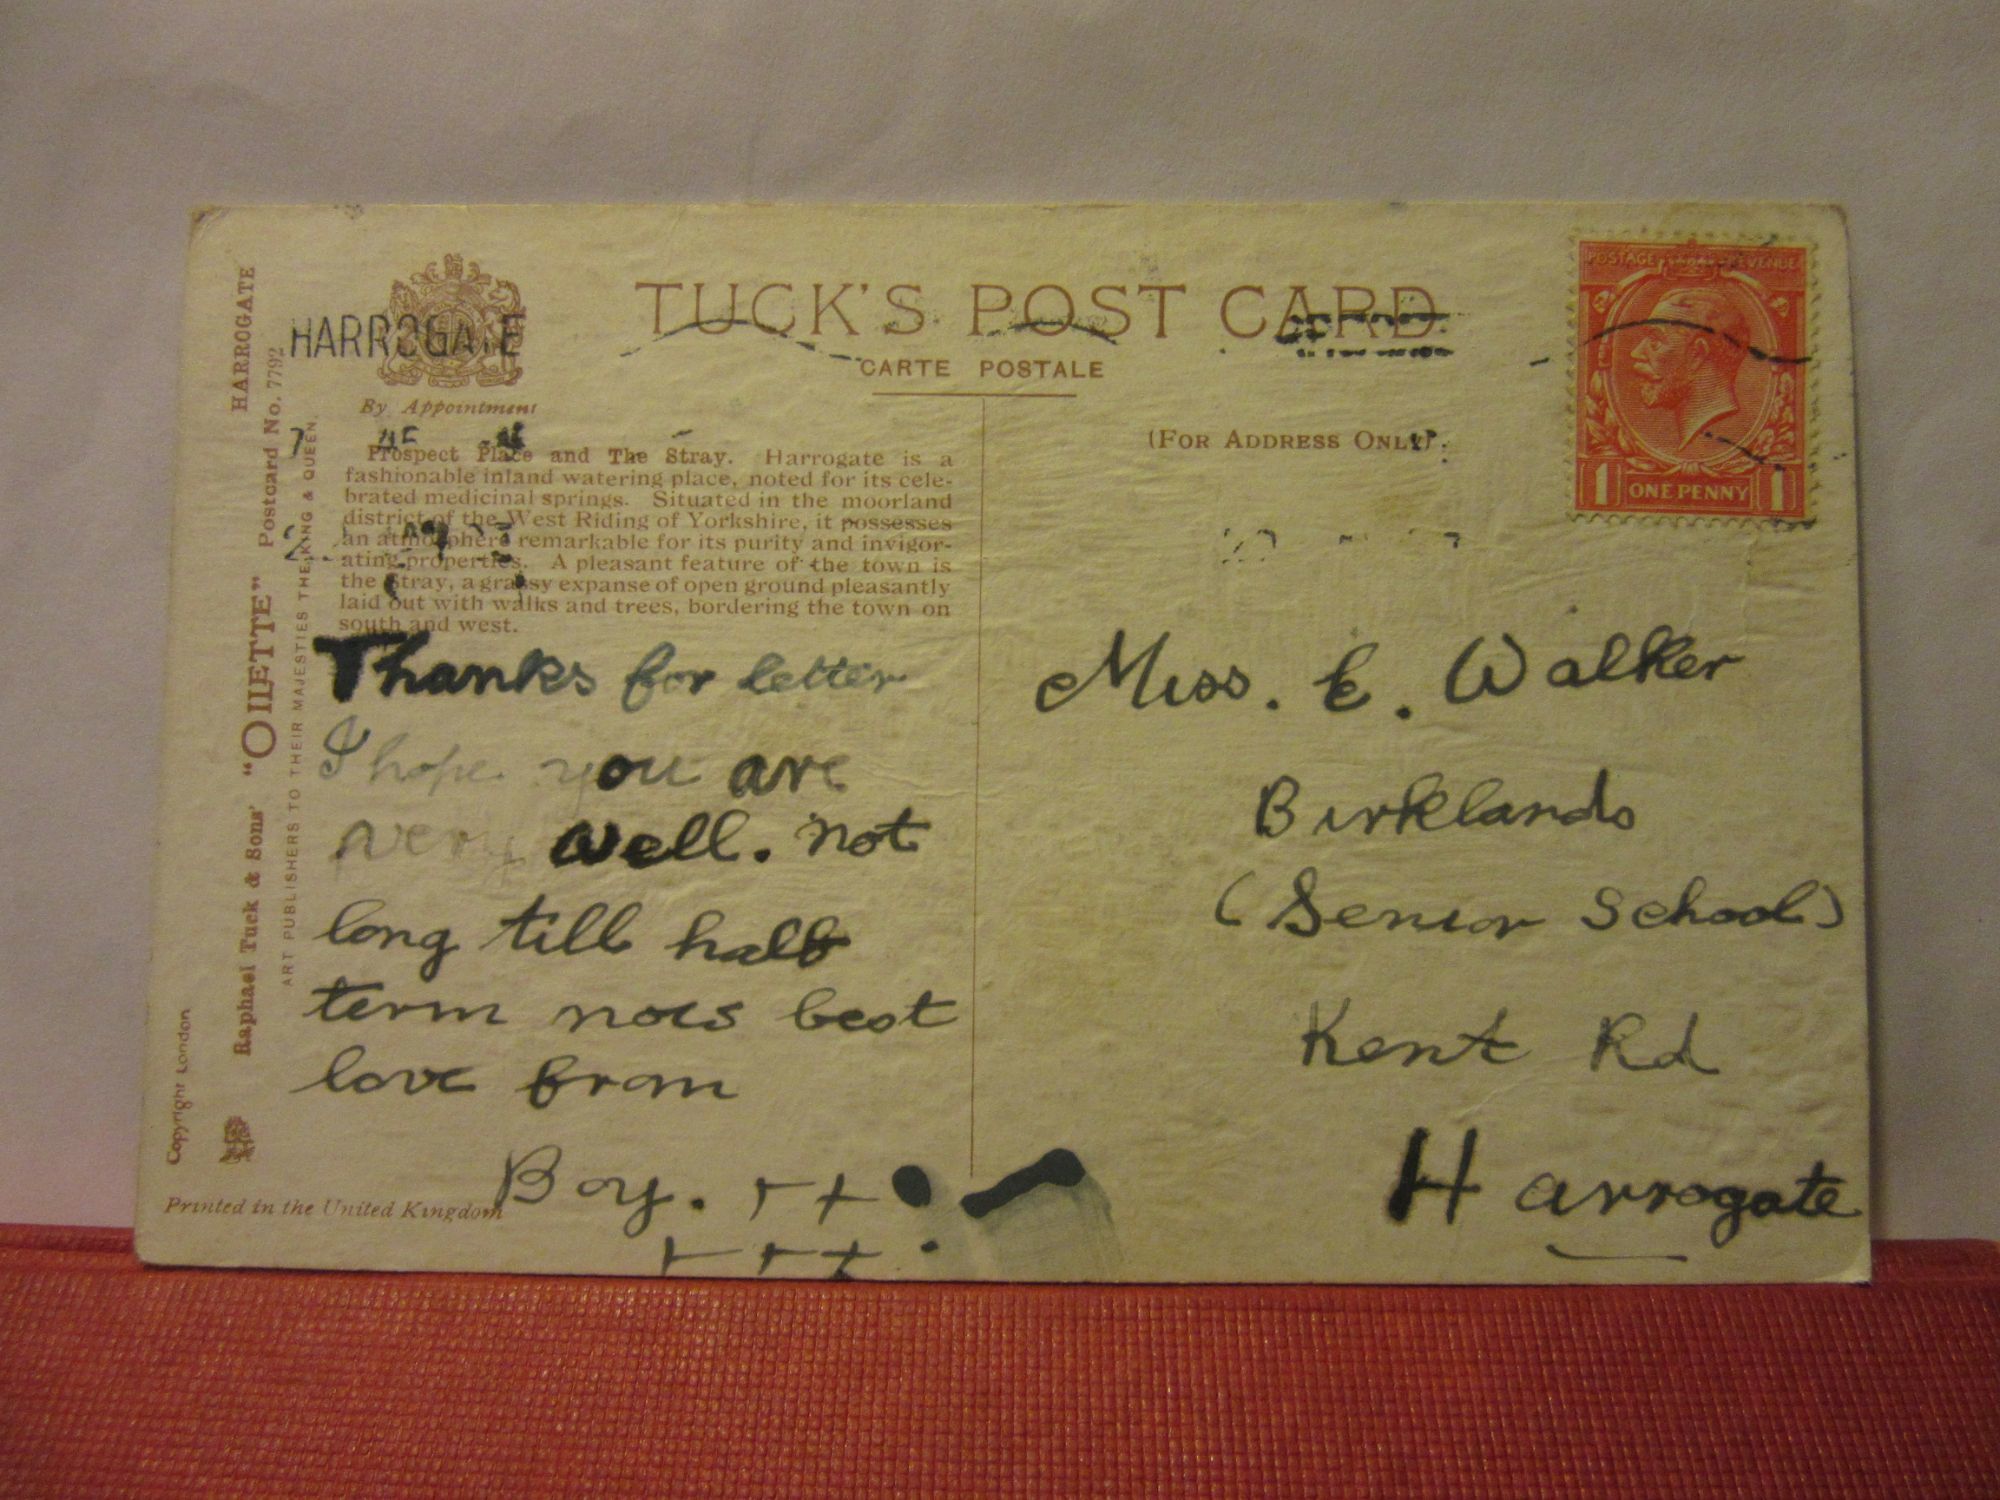 HARROGATE
TUCK'S POST CARD
CARTE POSTALE
By Appointment
(FOR ADDRESS ONLY)
POSTAGE REVENUE
1 ONE PENNY 1
Prospect Place and The Stray. Harrogate is a
fashionable inland watering place, noted for its cele-
brated medicinal springs. Situated in the moorland
district of the West Riding of Yorkshire, it possesses
an atmosphere remarkable for its purity and invigor-
ating properties. A pleasant feature of the town is
the Stray, a grassy expanse of open ground pleasantly
laid out with walks and trees, bordering the town on
south and west.
Thanks for letter
I hope you are
very well. not
long till half
term nows best
love from
Boy.
Miss. E. Walker
Birklands
(Senior School)
Kent Rd
Harrogate
Raphael Tuck & Sons' "OILETTE" Postcard No. 7792
HARROGATE
ART PUBLISHERS TO THEIR MAJESTIES THE KING & QUEEN.
Copyright London
Printed in the United Kingdom